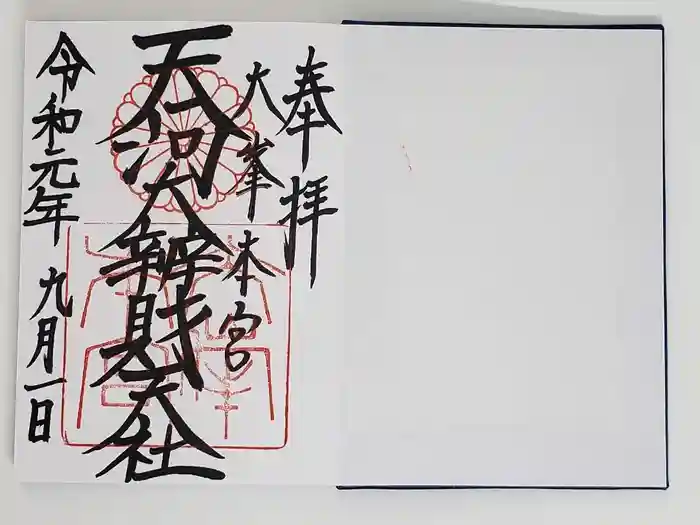 奉拝
大峯本宮
天河大辨財天社
令和元年 九月一日